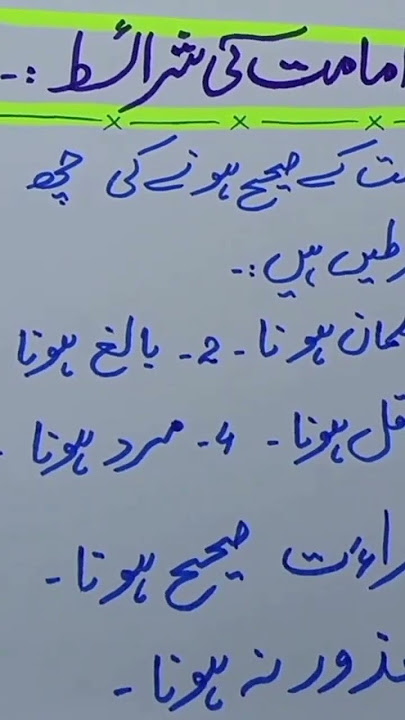 امامت کی شرائط :۔
ت کے صحیح ہونے کی چھ
رطیں ہیں :۔
مان ہونا ۔ 2۔ بالغ ہونا
قل ہونا ۔ 4۔ مرد ہونا ۔
راءت صحیح ہونا ۔
ذور نہ ہونا ۔